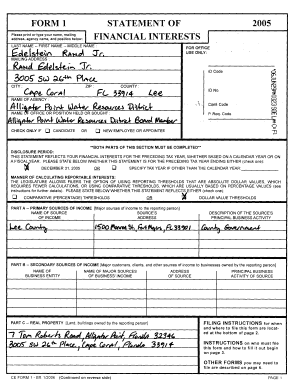 FORM 1 STATEMENT OF 2005
FINANCIAL INTERESTS
Please print or type your name, mailing
address, agency name, and position below:
LAST NAME - FIRST NAME - MIDDLE NAME :
Edelstein Rand Jr.
FOR OFFICE
USE ONLY:
MAILING ADDRESS :
Rand Edelstein Jr.
3005 SW 26th Place
ID Code
CITY : ZIP : COUNTY :
Cape Coral FL 33914 Lee
ID No.
NAME OF AGENCY :
Alligator Point Water Resources District
Conf. Code
NAME OF OFFICE OR POSITION HELD OR SOUGHT :
Alligator Point Water Resources District Board Member
P. Req. Code
CHECK ONLY IF CANDIDATE OR NEW EMPLOYEE OR APPOINTEE
**BOTH PARTS OF THIS SECTION MUST BE COMPLETED**
DISCLOSURE PERIOD:
THIS STATEMENT REFLECTS YOUR FINANCIAL INTERESTS FOR THE PRECEDING TAX YEAR, WHETHER BASED ON A CALENDAR YEAR OR ON
A FISCAL YEAR. PLEASE STATE BELOW WHETHER THIS STATEMENT IS FOR THE PRECEDING TAX YEAR ENDING EITHER (check one):
DECEMBER 31, 2005 OR SPECIFY TAX YEAR IF OTHER THAN THE CALENDAR YEAR:
MANNER OF CALCULATING REPORTABLE INTERESTS:
THE LEGISLATURE ALLOWS FILERS THE OPTION OF USING REPORTING THRESHOLDS THAT ARE ABSOLUTE DOLLAR VALUES, WHICH
REQUIRES FEWER CALCULATIONS, OR USING COMPARATIVE THRESHOLDS, WHICH ARE USUALLY BASED ON PERCENTAGE VALUES (see
instructions for further details). PLEASE STATE BELOW WHETHER THIS STATEMENT REFLECTS EITHER (check one):
COMPARATIVE (PERCENTAGE) THRESHOLDS OR DOLLAR VALUE THRESHOLDS
PART A -- PRIMARY SOURCES OF INCOME [Major sources of income to the reporting person]
NAME OF SOURCE SOURCE'S DESCRIPTION OF THE SOURCE'S
OF INCOME ADDRESS PRINCIPAL BUSINESS ACTIVITY
Lee County 1500 Monroe St, Fort Myers, FL 33901 County Government
PART B -- SECONDARY SOURCES OF INCOME [Major customers, clients, and other sources of income to businesses owned by the reporting person]
NAME OF NAME OF MAJOR SOURCES ADDRESS PRINCIPAL BUSINESS
BUSINESS ENTITY OF BUSINESS' INCOME OF SOURCE ACTIVITY OF SOURCE
PART C -- REAL PROPERTY [Land, buildings owned by the reporting person]
7 Tom Roberts Road, Alligator Point, Florida 32346
3005 SW 26th Place, Cape Coral, Florida 33914
FILING INSTRUCTIONS for when
and where to file this form are locat-
ed at the bottom of page 2.
INSTRUCTIONS on who must file
this form and how to fill it out begin
on page 3.
OTHER FORMS you may need to
file are described on page 6.
CE FORM 1 - Eff. 1/2006 (Continued on reverse side) PAGE 1